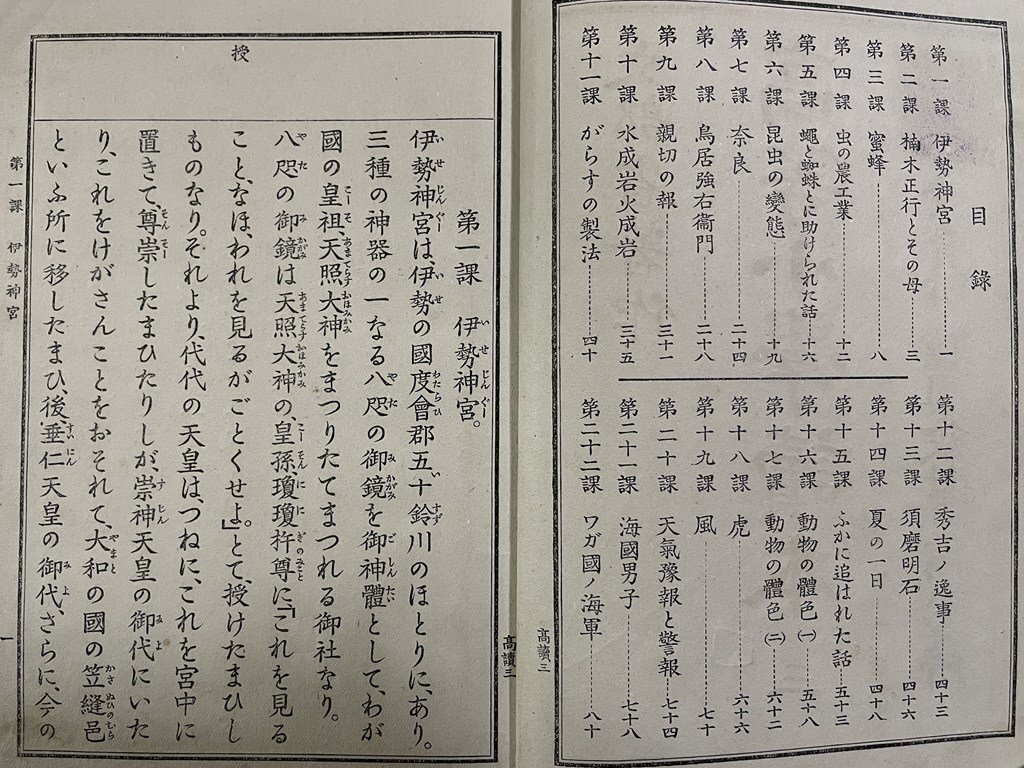 目錄
第一課 伊勢神宮 一
第二課 楠木正行とその母 三
第三課 蜜蜂 八
第四課 虫の農工業 十二
第五課 蠅と蜘蛛とに助けられた話 十六
第六課 昆虫の變態 十九
第七課 奈良 二十四
第八課 鳥居強右衞門 二十八
第九課 親切の報 三十一
第十課 水成岩火成岩 三十五
第十一課 がらすの製法 四十
第十二課 秀吉ノ逸事 四十三
第十三課 須磨明石 四十六
第十四課 夏の一日 四十八
第十五課 ふかに追はれた話 五十三
第十六課 動物の體色(一) 五十八
第十七課 動物の體色(二) 六十二
第十八課 虎 六十六
第十九課 風 七十
第二十課 天氣豫報と警報 七十四
第二十一課 海國男子 七十八
第二十二課 ワガ國ノ海軍 八十
高讀三
高讀三
授
第一課 伊勢神宮。
伊勢神宮は、伊勢の國度會郡五十鈴川のほとりに、あり。
三種の神器の一なる八咫の御鏡を御神體として、わが
國の皇祖、天照大神をまつりたてまつれる御社なり。
八咫の御鏡は天照大神の、皇孫、瓊瓊杵尊に、「これを見る
こと、なほ、われを見るがごとくせよ。」とて、授けたまひし
ものなり。それより、代代の天皇は、つねに、これを宮中に
置きて、尊崇したまひたりしが、崇神天皇の御代にいた
り、これをけがさんことをおそれて、大和の國の笠縫邑
といふ所に移したまひ、後、垂仁天皇の御代、さらに、今の
第一課 伊勢神宮
一